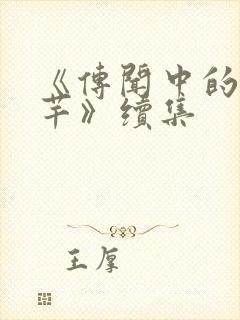 《傳聞中的
芊》續集
王厚